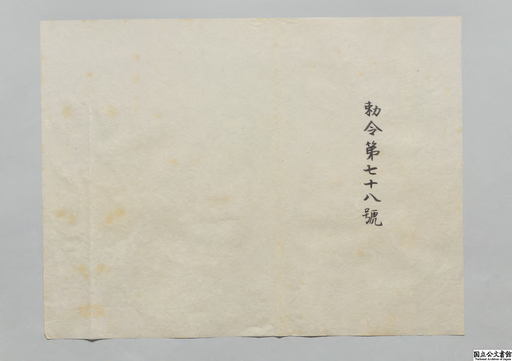 勅令第七十八號
国立公文書館
National Archives of Japan